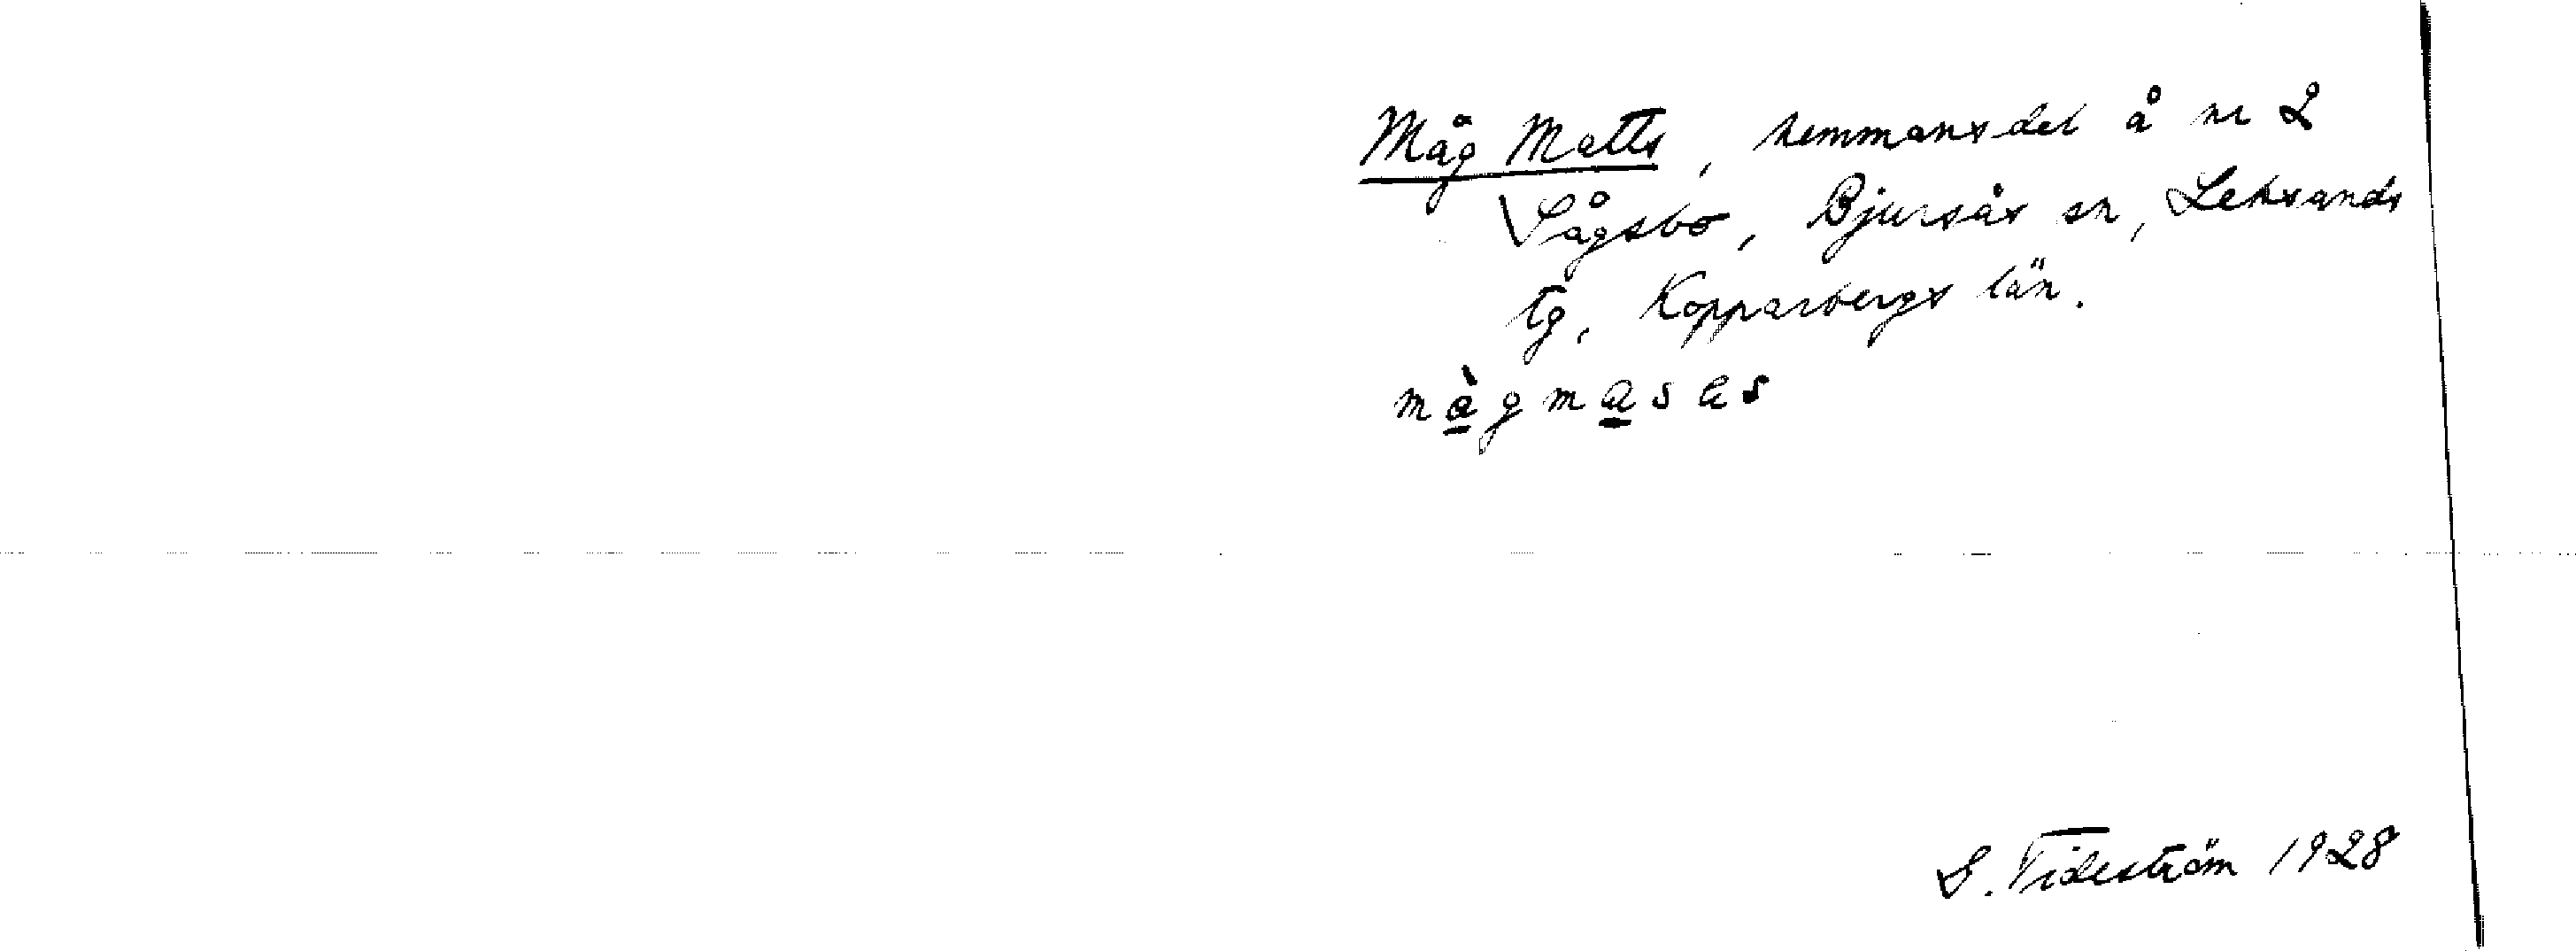 Måg Matts, hemmansdel å nr 2
Sågsbo, Bjursås sn, Leksands
tg, Kopparbergs län.
màgmasas
S. Tideström 1928